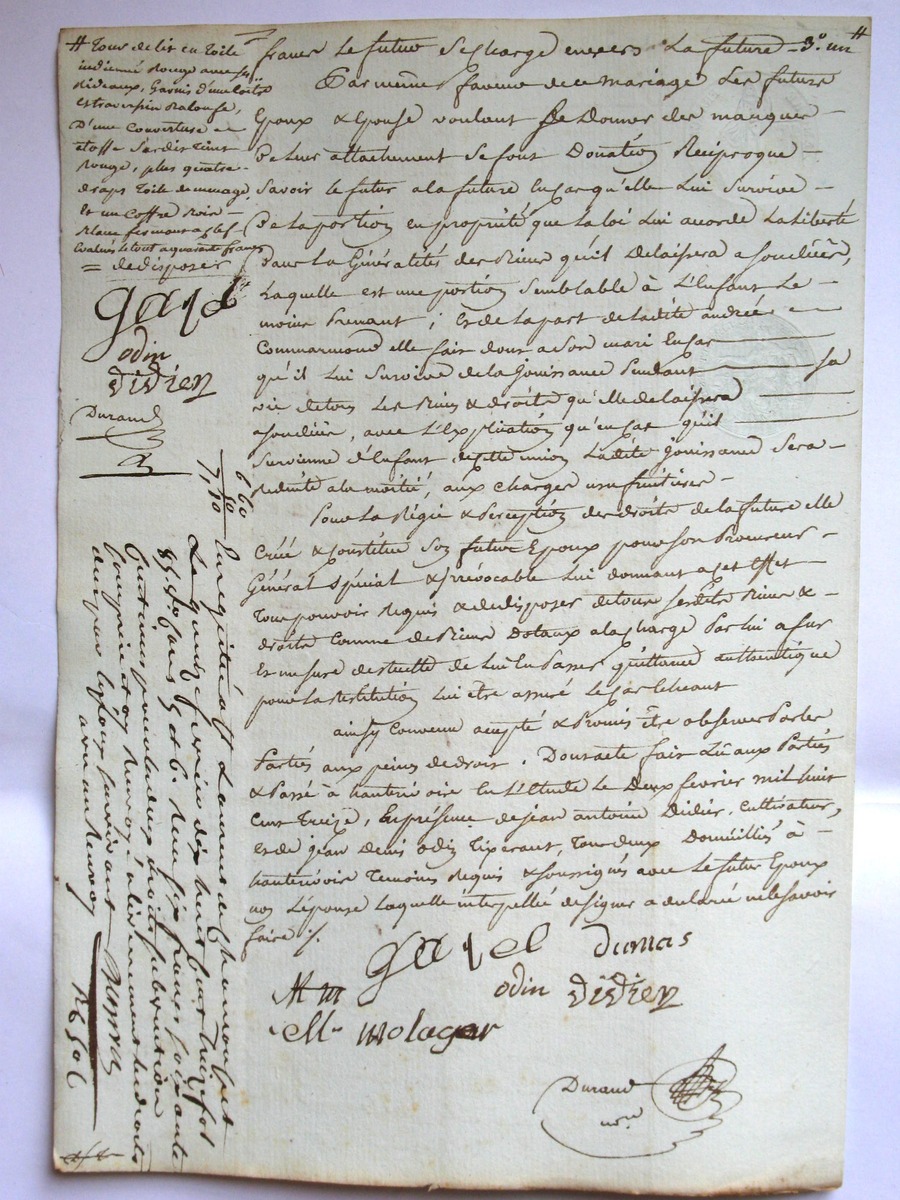 # Tour de lit en toile
indienne Rouge avec ses
Rideaux, Garnis d'une Coitte
et traversin Balouse,
D'une Couverture en
étoffe Sardis teint
Rouge, plus quatre
draps toile de menage
Et un Coffre noir
fermant a clef
Evalués le tout a quarante francs
= de disposer
Gayel
odin
didier
Durand
francs le futur Se charge envers La future - 3.º un #
Par même faveur de ce mariage Les futurs
Epoux & Epouse voulant Se Donner des marques
De leur attachement Se font Donation Réciproque
Savoir le futur a la future En Cas qu'elle Lui Survive
De la portion en propriété que La loi Lui accorde La liberté =
Dans La Généralités des Biens qu'il Delaissera a son décès,
Laquelle est une portion Semblable à L'Enfant Le
moins Prenant ; Et de La part de Ladite andrée
Commarmond elle fait don a Son mari En Cas
qu'il Lui Survive de la Jouissance Pendant sa
vie de tous Les Biens & droits qu'elle delaissera
a son décès, avec L'Explication qu'en Cas qu'il
Survienne d'Enfant de cette union Ladite Jouissance Sera
reduite a la moitié, aux charges usufruitières
Pour La Régie & Perception des droits de la future elle
Créé & Constitue Son futur Epoux pour son Procureur
Général Spécial & irrévocable Lui donnant a cet Effet
Tout pouvoir Requis & de disposer de tous Sesdits Biens &
droits Comme de Biens Dotaux a la charge Par lui a fur
Et mesure de Recette de Lui En Passer quittance authentique
pour La Restitution Lui être assuré Le Cas Echéant
ainsy Convenu accepté & Promis être observer Par les
Parties aux peines de droit. Dont acte fait Lû aux Parties
& Passé à hauterivoire En L'Etude Le Deux février mil huit
Cent Treize, En présence de jean antoine Didier, Cultivateur,
et de jean Denis odin Tixerant, Tous deux Domiciliés à
hauterivoire Temoins Requis & Soussignés avec Le futur Epoux
non L'épouse Laquelle interpellée de signer a declarée ne le savoir
faire /.
Gayel Dumas
odin didier
Mr molager
Durand
nore
6 60
60
7,20
Enregistré a St Laurent de Chamousset
Le quinze février dix huit cent treize fol
85. Vo Cases 5 et 6. Reçu Six francs soixante
Centimes pour
Compris et un Renvoi
Dumas